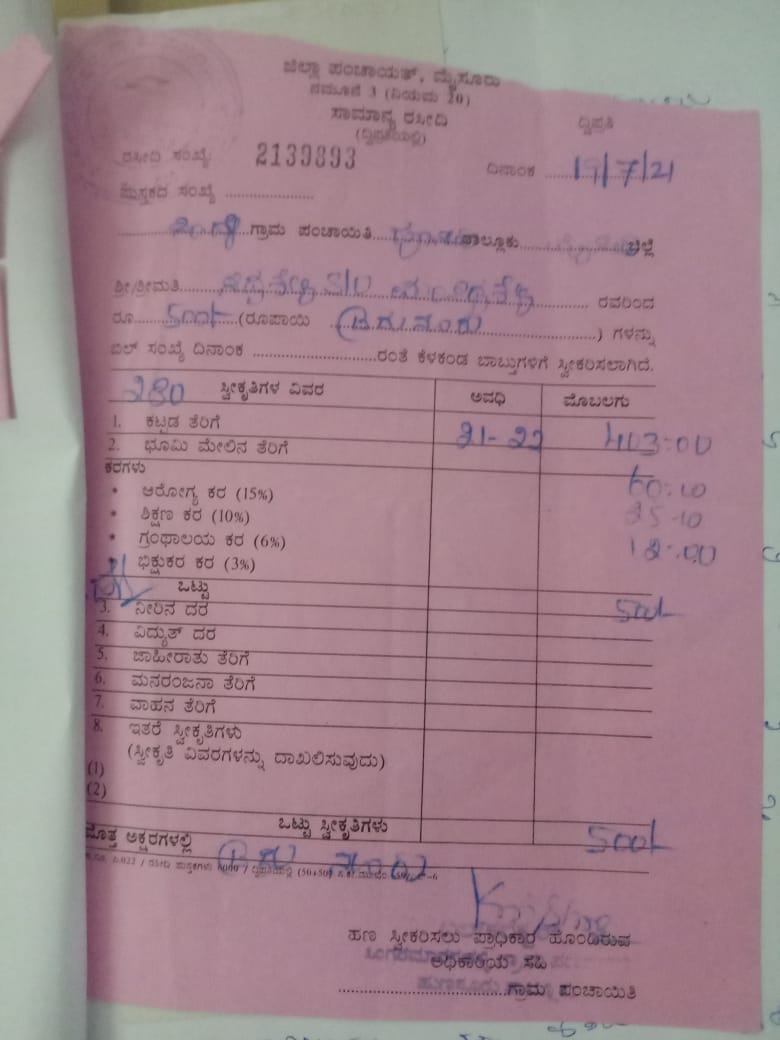 ಜಿಲ್ಲಾ ಪಂಚಾಯತ್, ಮೈಸೂರು
ನಮೂನೆ 3 (ನಿಯಮ 20)
ಸಾಮಾನ್ಯ ರಸೀದಿ ದ್ವಿಪ್ರತಿ
(ದ್ವಿಪ್ರತಿಯಲ್ಲಿ)
ರಸೀದಿ ಸಂಖ್ಯೆ: 2139893 ದಿನಾಂಕ ......19/7/21
ಪುಸ್ತಕದ ಸಂಖ್ಯೆ ....................
ಗ್ರಾಮ ಪಂಚಾಯಿತಿ ತಾಲ್ಲೂಕು ಜಿಲ್ಲೆ
ಶ್ರೀ/ಶ್ರೀಮತಿ S/o ರವರಿಂದ
ರೂ.....500/-....(ರೂಪಾಯಿ ಐದು ನೂರು ) ಗಳನ್ನು
ಬಿಲ್ ಸಂಖ್ಯೆ ದಿನಾಂಕ ........................ರಂತೆ ಕೆಳಕಂಡ ಬಾಬ್ತುಗಳಿಗೆ ಸ್ವೀಕರಿಸಲಾಗಿದೆ.
280 ಸ್ವೀಕೃತಿಗಳ ವಿವರ ಅವಧಿ ಮೊಬಲಗು
1. ಕಟ್ಟಡ ತೆರಿಗೆ
2. ಭೂಮಿ ಮೇಲಿನ ತೆರಿಗೆ 21-22 403=00
ಕರಗಳು
• ಆರೋಗ್ಯ ಕರ (15%) 60=10
• ಶಿಕ್ಷಣ ಕರ (10%)
• ಗ್ರಂಥಾಲಯ ಕರ (6%)
• ಭಿಕ್ಷುಕರ ಕರ (3%)
ಒಟ್ಟು 500/-
3. ನೀರಿನ ದರ
4. ವಿದ್ಯುತ್ ದರ
5. ಜಾಹೀರಾತು ತೆರಿಗೆ
6. ಮನರಂಜನಾ ತೆರಿಗೆ
7. ವಾಹನ ತೆರಿಗೆ
8. ಇತರೆ ಸ್ವೀಕೃತಿಗಳು
(ಸ್ವೀಕೃತಿ ವಿವರಗಳನ್ನು ದಾಖಲಿಸುವುದು)
(1)
(2)
ಒಟ್ಟು ಸ್ವೀಕೃತಿಗಳು 500/-
ಮೊತ್ತ ಅಕ್ಷರಗಳಲ್ಲಿ ಐದು ನೂರು
ಹಣ ಸ್ವೀಕರಿಸಲು ಪ್ರಾಧಿಕಾರ ಹೊಂದಿರುವ
ಅಧಿಕಾರಿಯ ಸಹಿ
..............................ಗ್ರಾಮ ಪಂಚಾಯಿತಿ